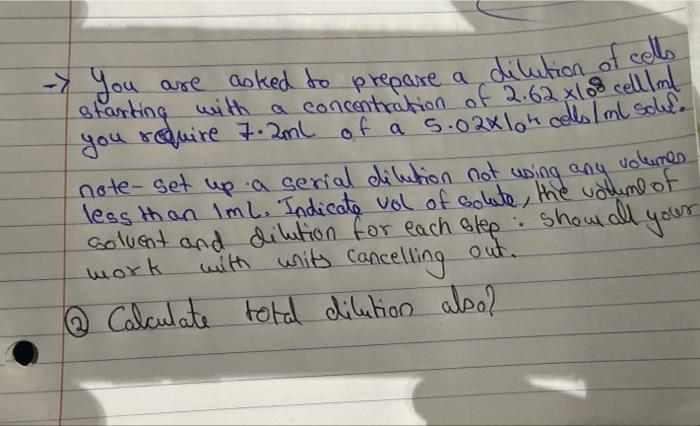 -> You are asked to prepare a dilution of cells
starting with a concentration of 2.62 x10⁸ cell/ml
you require 7.2mL of a 5.02x10⁴ cells/ml solut.
note- set up a serial dilution not using any volumes
less than 1mL. Indicate vol of solute, the volume of
solvent and dilution for each step : show all your
work with units cancelling out.
② Calculate total dilution also?